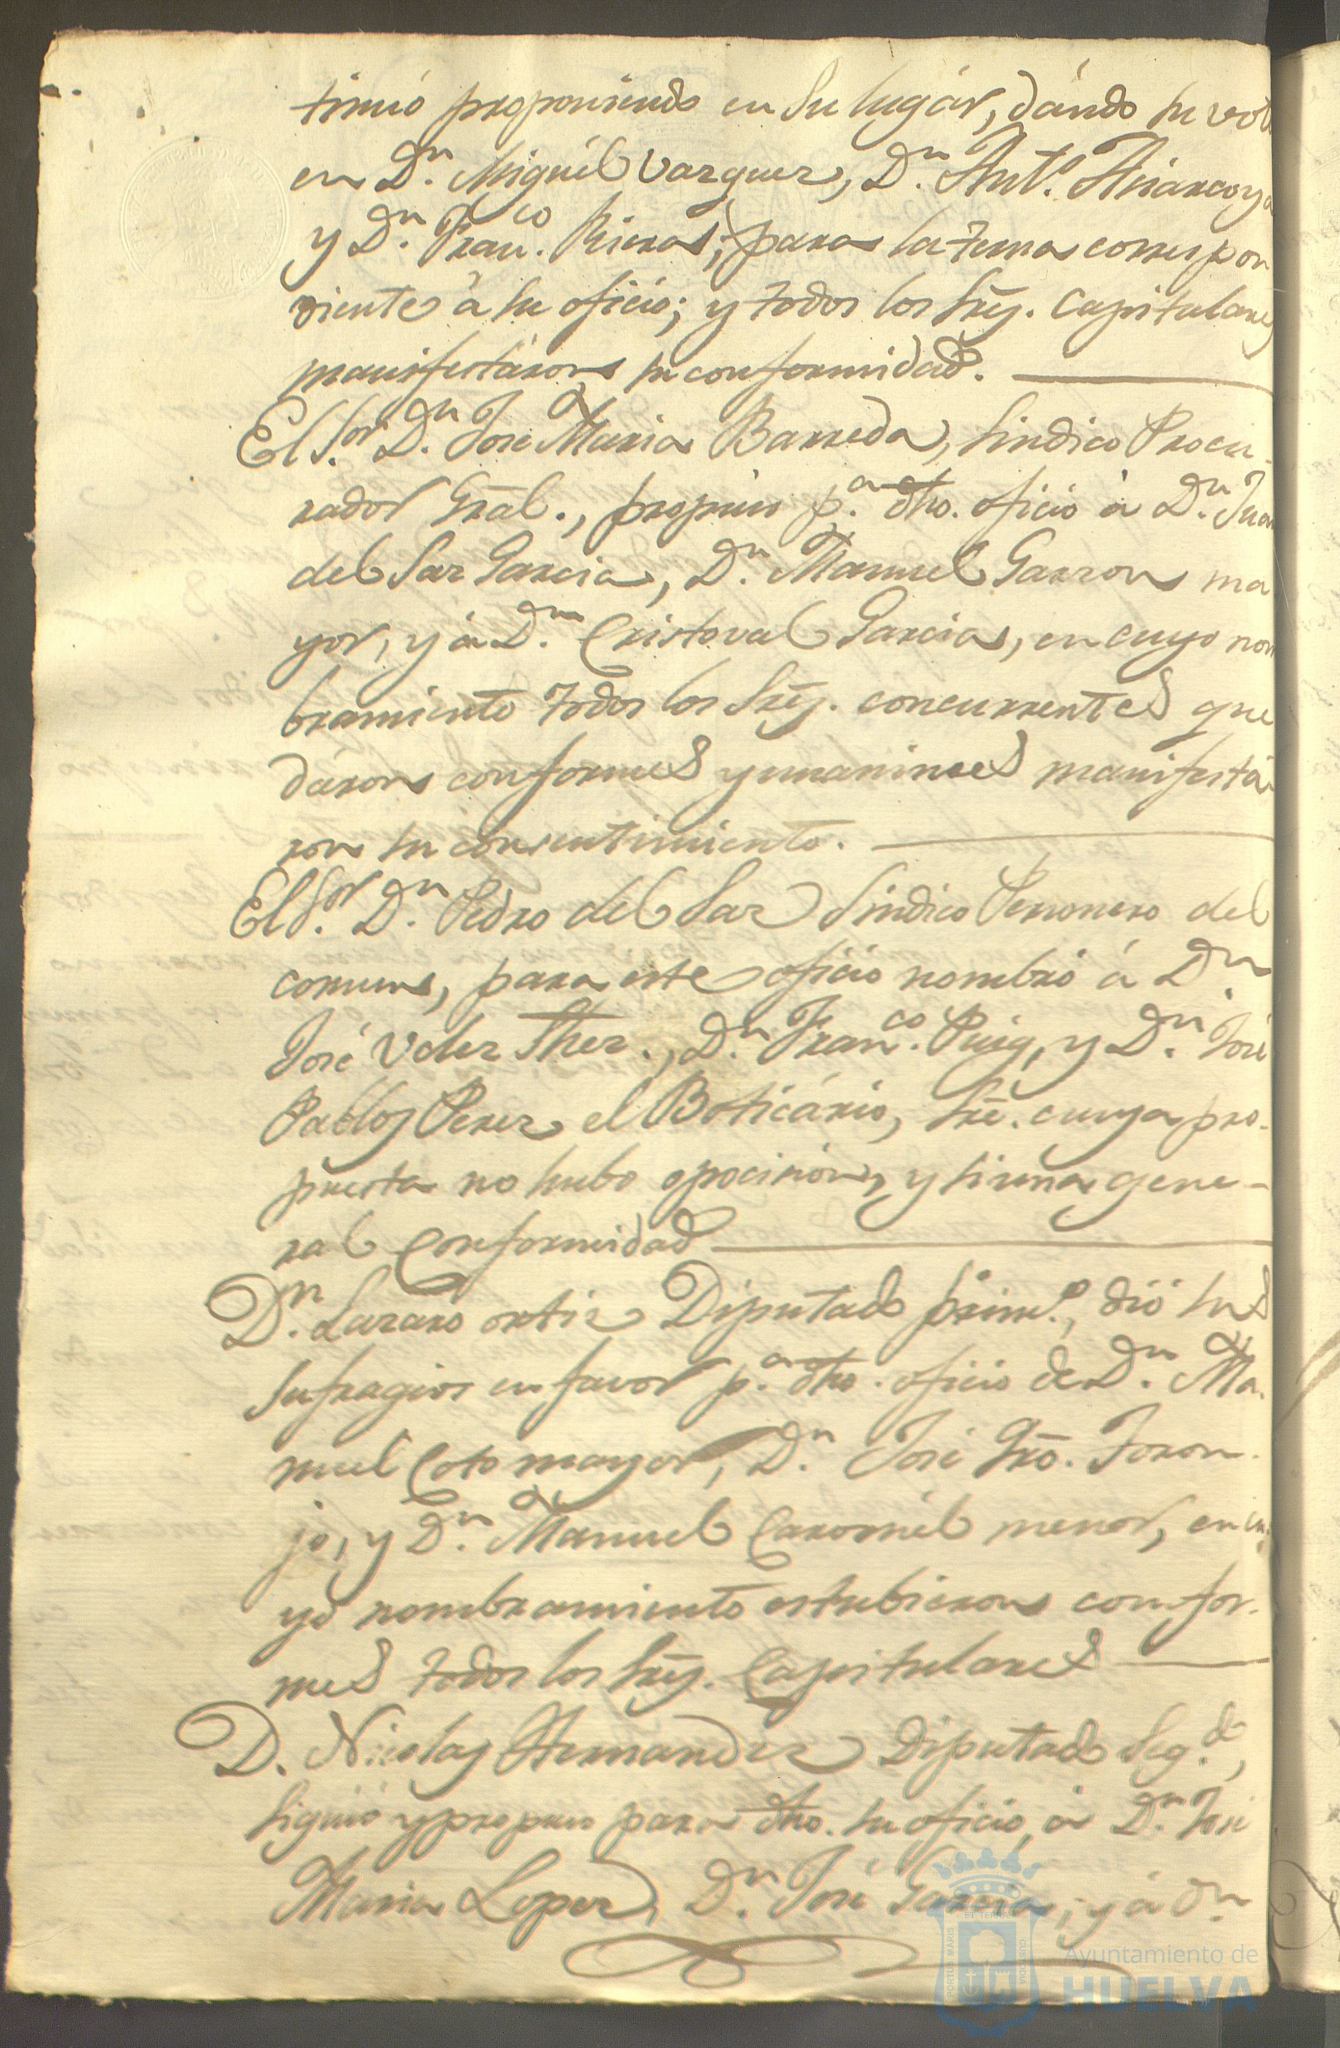 tinuó proponiendo en su lugár, dándo su voto
en Dn. Miguél Vazquez, Dn. Anto.
y Dn. Franco. Rieras, para la terna correspon
diente á su oficio; y todos los Sres. Capitulares
manifestáron su conformidad.
El Sor. Dn. José Maria Barreda, Sindico Procu-
rador Gral., propuso pa. dho. oficio á Dn. Juan
del Saz Garcia, Dn. Manuel Garzon ma
yor, y á Dn. Cristoval Garcia, en cuyo nom
bramiento todos los Sres. concurrentes que
daron conformes y unanimes manifestá
ron su consentimiento.
El Sor. Dn. Pedro del Saz Sindico Personero del
comun, para este oficio nombró á Dn.
José Velez, Dn. Franco. Puig, y Dn. José
Pablos Perez el Boticário, sre. cuya pro-
puesta no hubo oposición, y si una gene-
ral conformidad
Dn. Lazaro ortiz Diputado primo., dió sus
sufragios en favor pa. dho. oficio de Dn. Ma-
nuel Coto mayor, Dn. José Gro. Toron-
jo, y Dn. Manuel Caromél menor, en cu-
yo nombramiento estubieron confor-
mes todos los Sres. Capitulares
D. Nicolas Hernandez Diputado Segdo.,
siguió y propuso para dho. su oficio, á Dn. José
Maria Lopez, Dn. José Garcia, y á Dn.
Ayuntamiento de
HUELVA